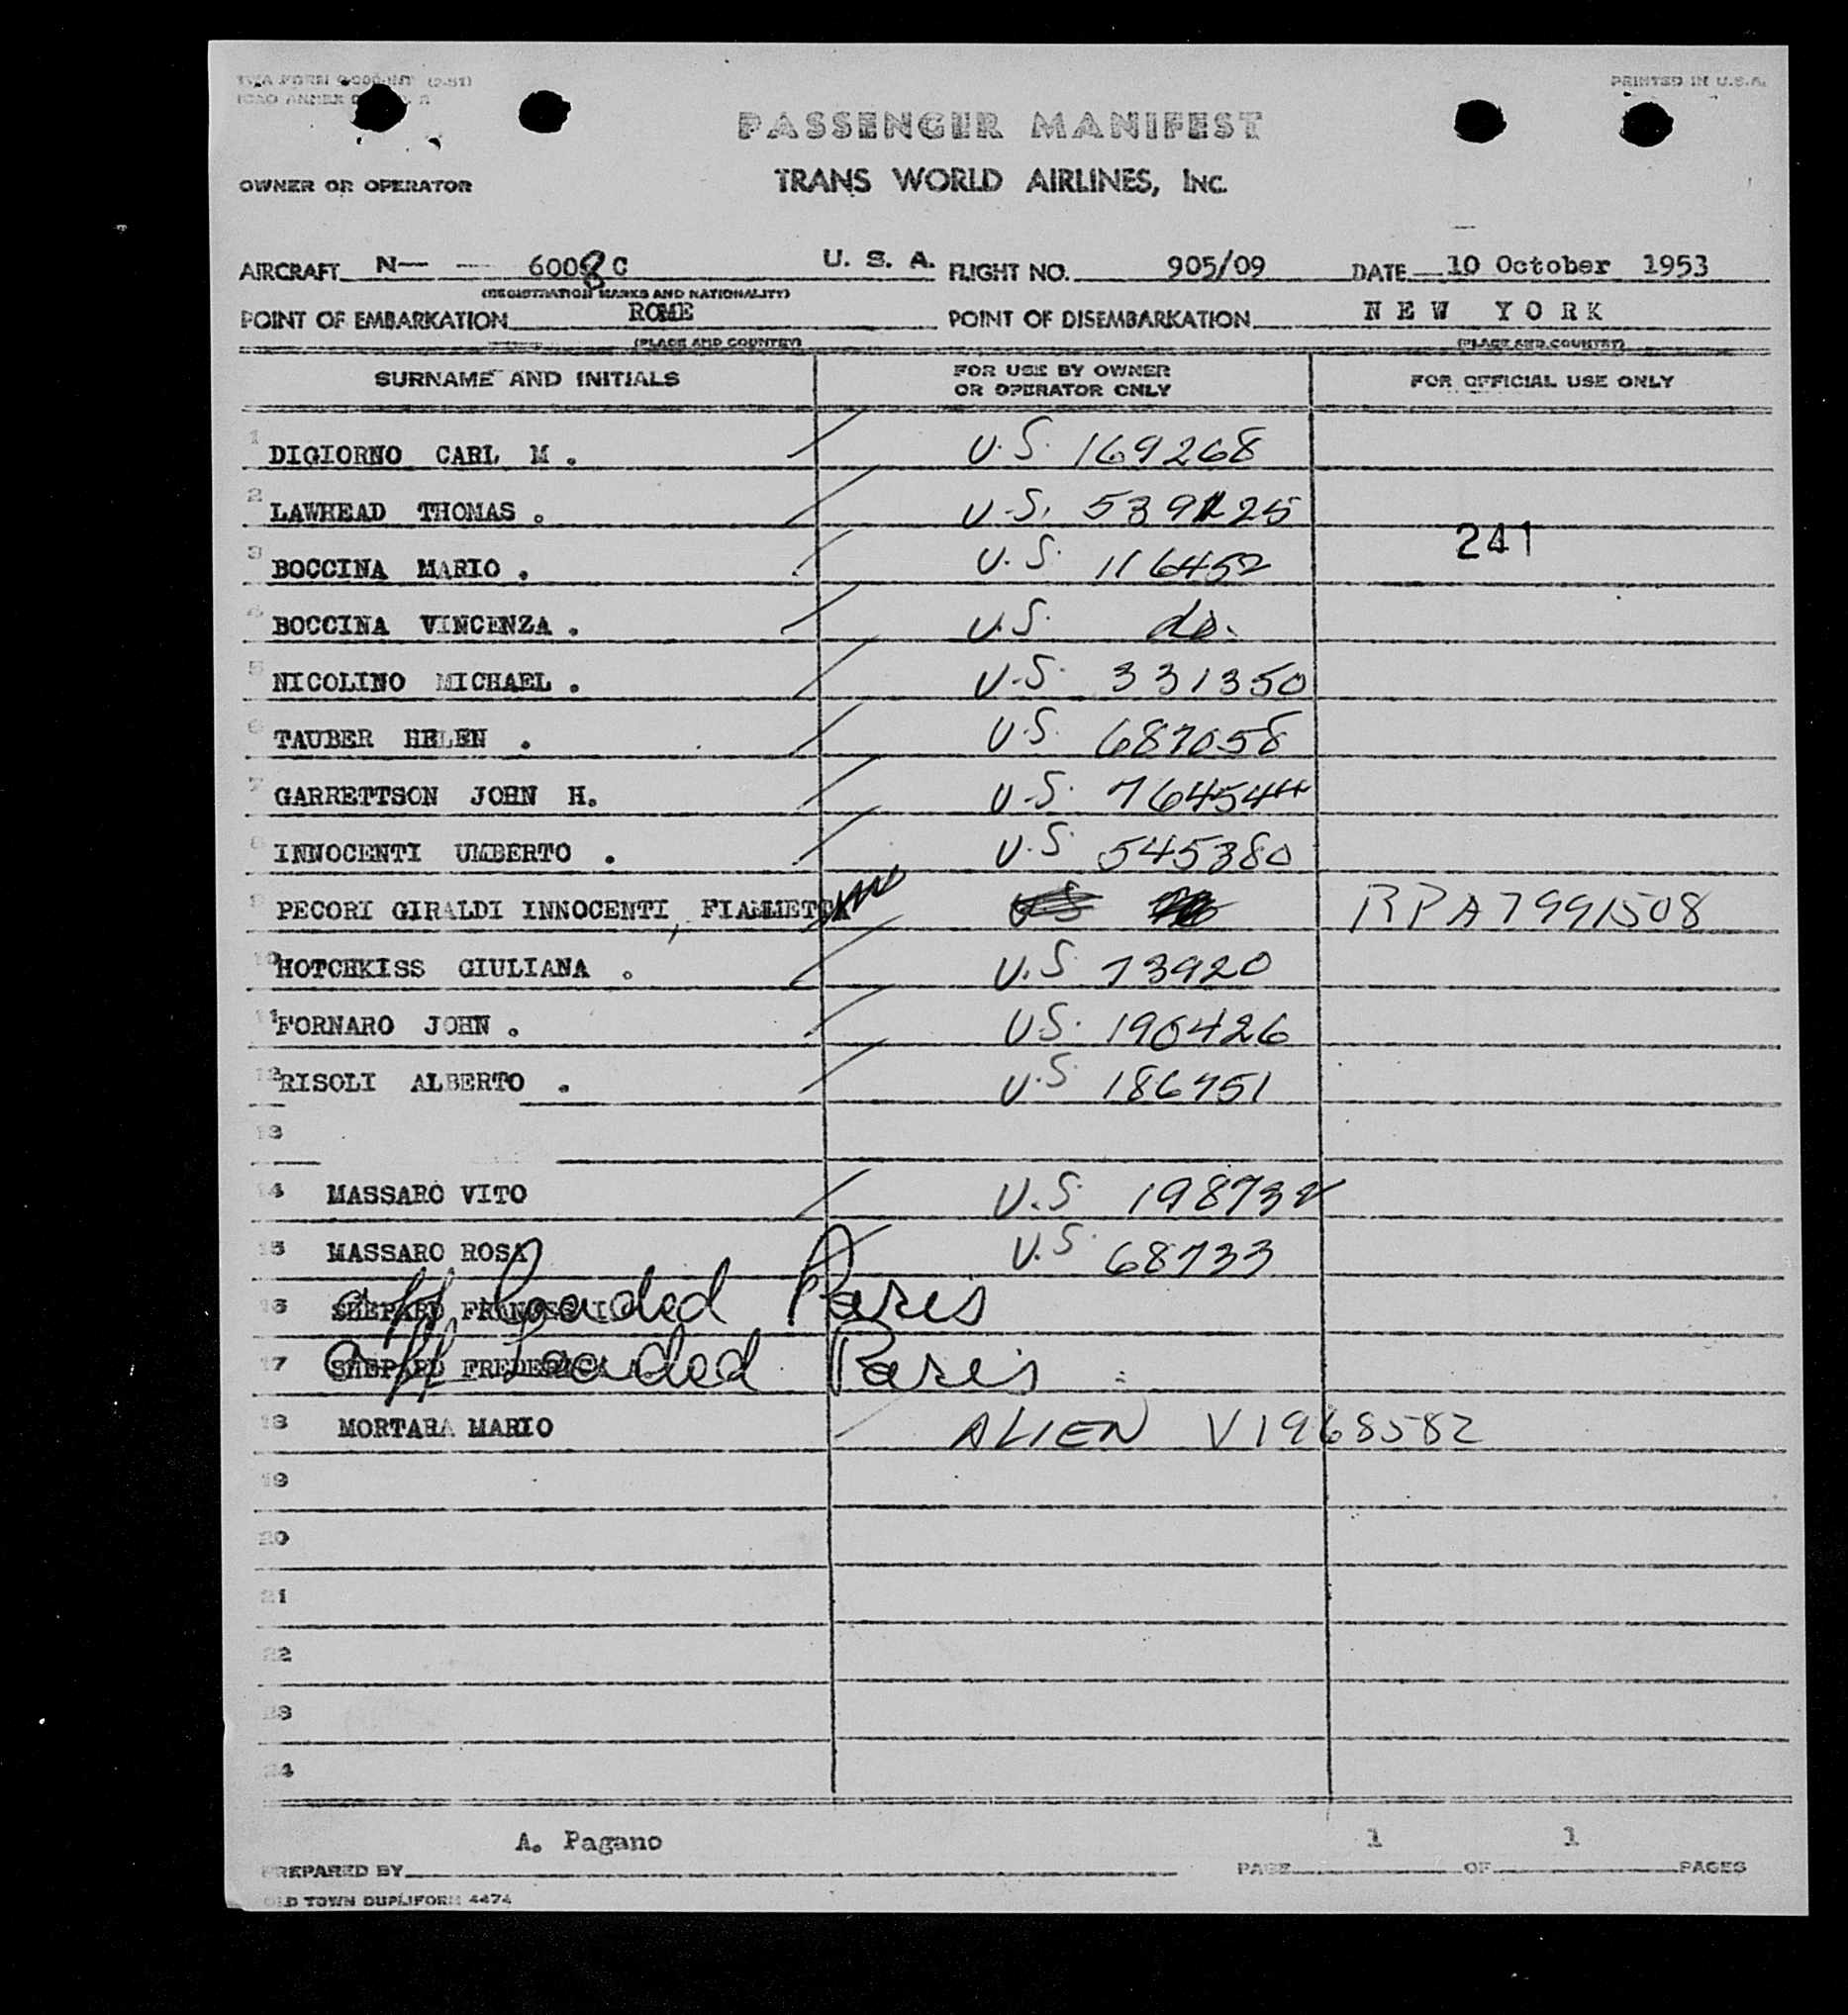 PRINTED IN U.S.A.
PASSENGER MANIFEST
OWNER OR OPERATOR TRANS WORLD AIRLINES, INC.
AIRCRAFT N— 6008C U. S. A. FLIGHT NO. 905/09 DATE 10 October 1953
(REGISTRATION MARKS AND NATIONALITY)
POINT OF EMBARKATION ROME POINT OF DISEMBARKATION NEW YORK
(PLACE AND COUNTRY) (PLACE AND COUNTRY)
SURNAME AND INITIALS FOR USE BY OWNER OR OPERATOR ONLY FOR OFFICIAL USE ONLY
1 DIGIORNO CARL M . U.S. 169268
2 LAWHEAD THOMAS . U.S. 539125
241
3 BOCCINA MARIO . U.S. 116452
4 BOCCINA VINCENZA . U.S. do.
5 NICOLINO MICHAEL . U.S. 331350
6 TAUBER HELEN . U.S. 687058
7 GARRETTSON JOHN H. U.S. 764544
8 INNOCENTI UMBERTO . U.S 545380
9 PECORI GIRALDI INNOCENTI, FIAMMETTA RPA7991508
10 HOTCHKISS GIULIANA . U.S 73920
11 FORNARO JOHN . U.S. 190426
12 RISOLI ALBERTO . U.S 186751
13
14 MASSARO VITO U.S 198732
15 MASSARO ROSA U.S. 68733
16 SHEPARD off loaded Paris
17 SHEPARD FREDERICA off Loaded Paris
18 MORTARA MARIO ALIEN V1968582
19
20
21
22
23
24
A. Pagano 1 1
PREPARED BY PAGE OF PAGES
OLD TOWN DUPLIFORM 4474